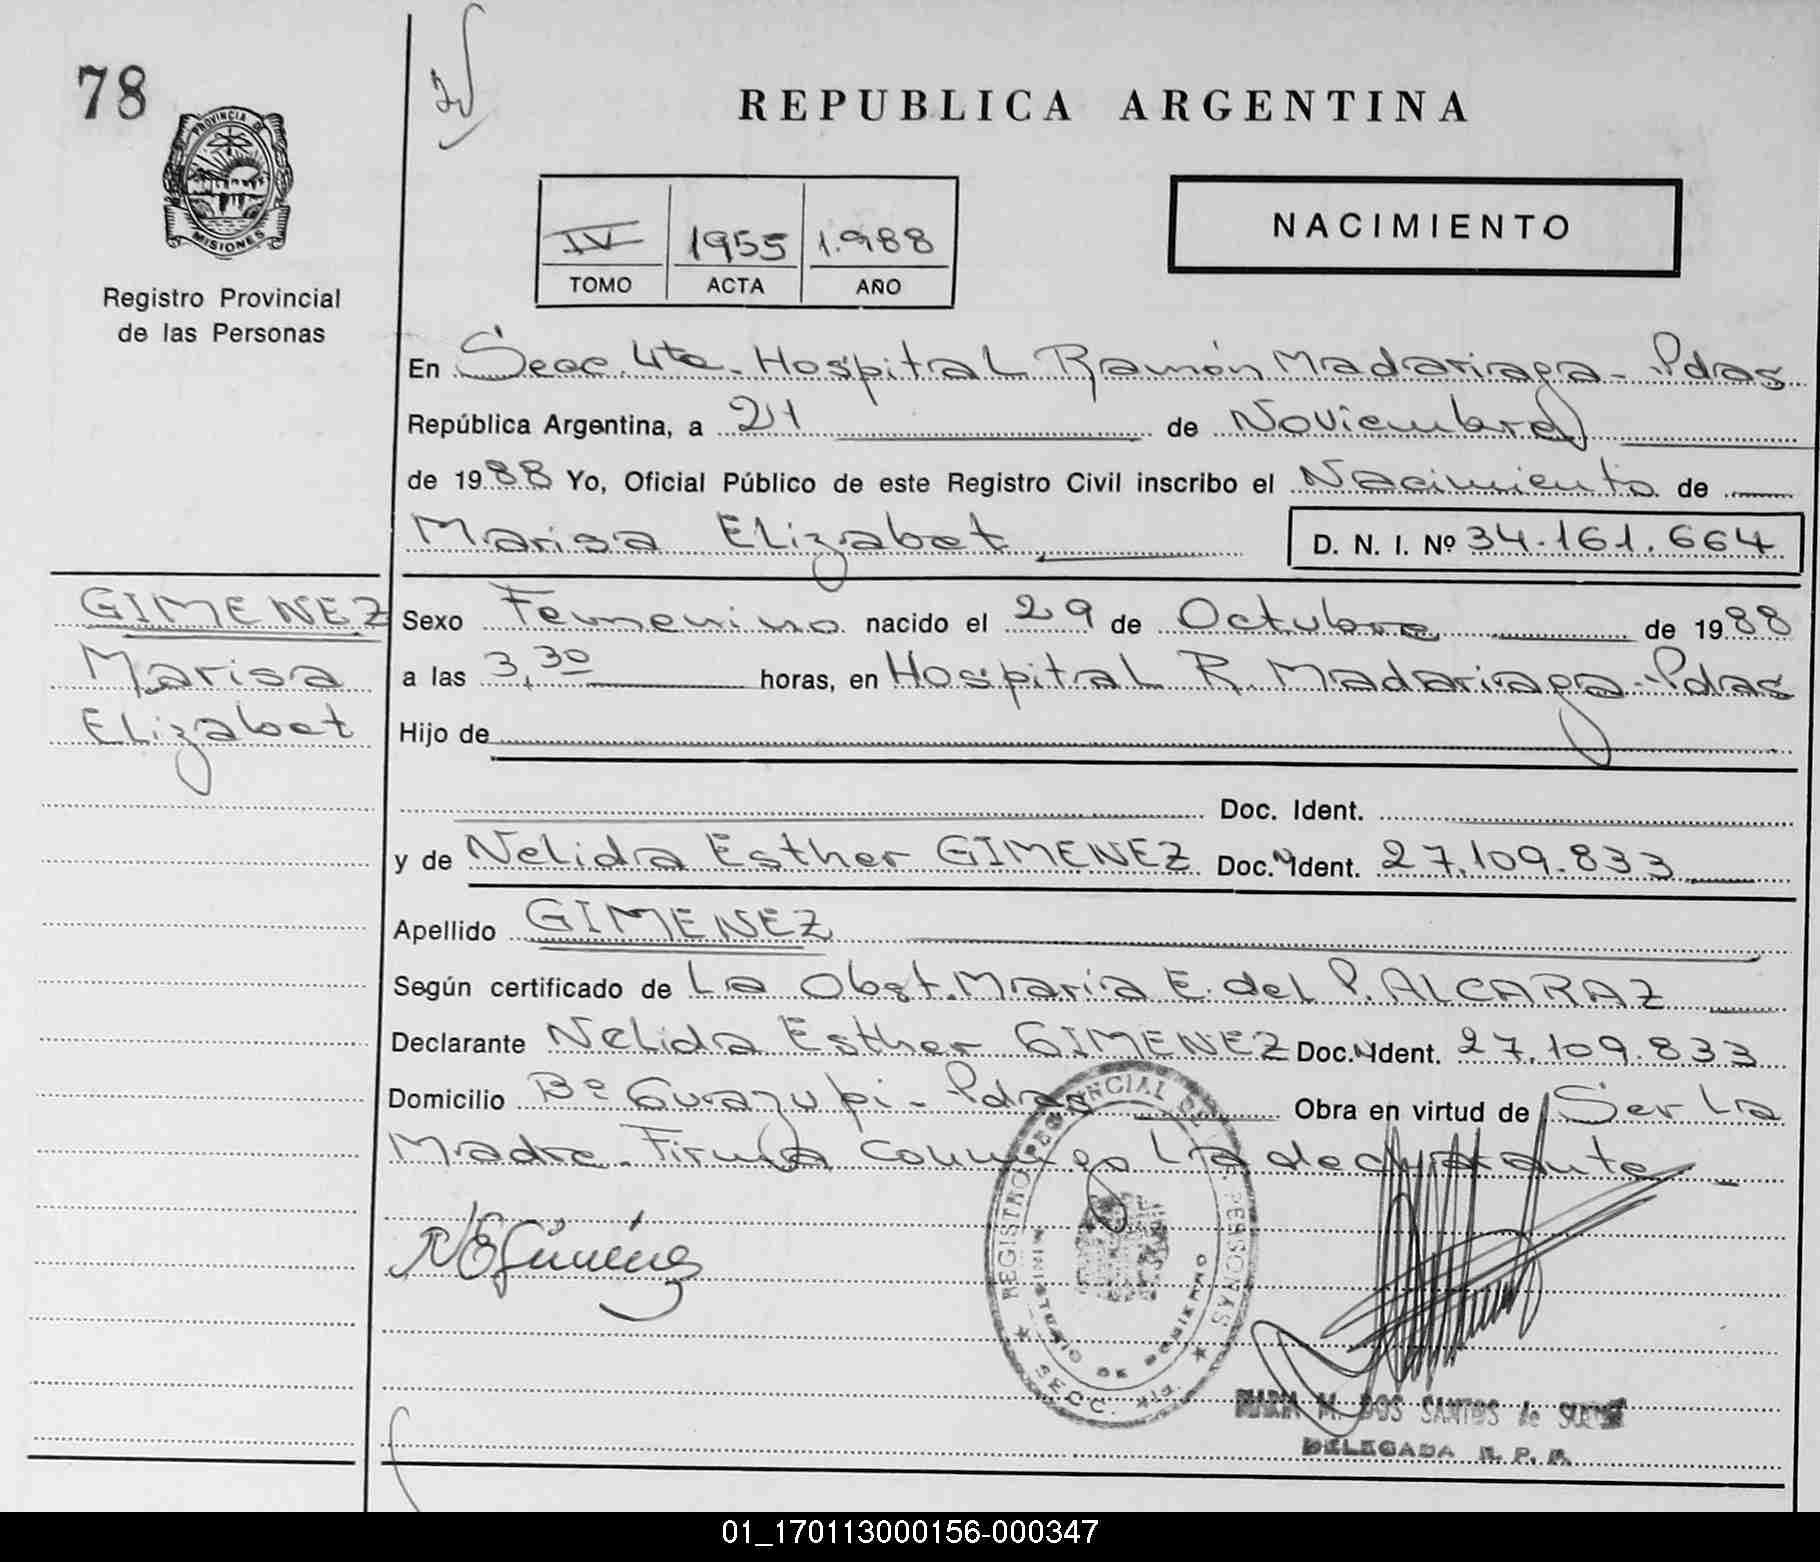 78
PROVINCIA DE
MISIONES
Registro Provincial
de las Personas
REPUBLICA ARGENTINA
IV 1955 1.988
TOMO ACTA AÑO
NACIMIENTO
En Secc. 4ta. Hospital Ramón Madariaga - Pdas
República Argentina, a 21 de Noviembre
de 1988 Yo, Oficial Público de este Registro Civil inscribo el Nacimiento de
Marisa Elizabet D. N. I. Nº 34.161.664
GIMENEZ
Marisa
Elizabet
Sexo Femenino nacido el 29 de Octubre de 1988
a las 3,30 horas, en Hospital R. Madariaga - Pdas
Hijo de
Doc. Ident.
y de Nelida Esther GIMENEZ Doc. N Ident. 27.109.833
Apellido GIMENEZ
Según certificado de La Obst. Maria E. del P. ALCARAZ
Declarante Nelida Esther GIMENEZ Doc. N Ident. 27.109.833
Domicilio Bº Guazupi - Pdas Obra en virtud de Ser La
Madre. Firma conmigo La declarante
NEGiménez
REGISTRO PROVINCIAL DE LAS PERSONAS
MINISTERIO DE GOBIERNO
SECC. 4ta.
M. DOS SANTOS de
DELEGADA R. P. P.
01_170113000156-000347